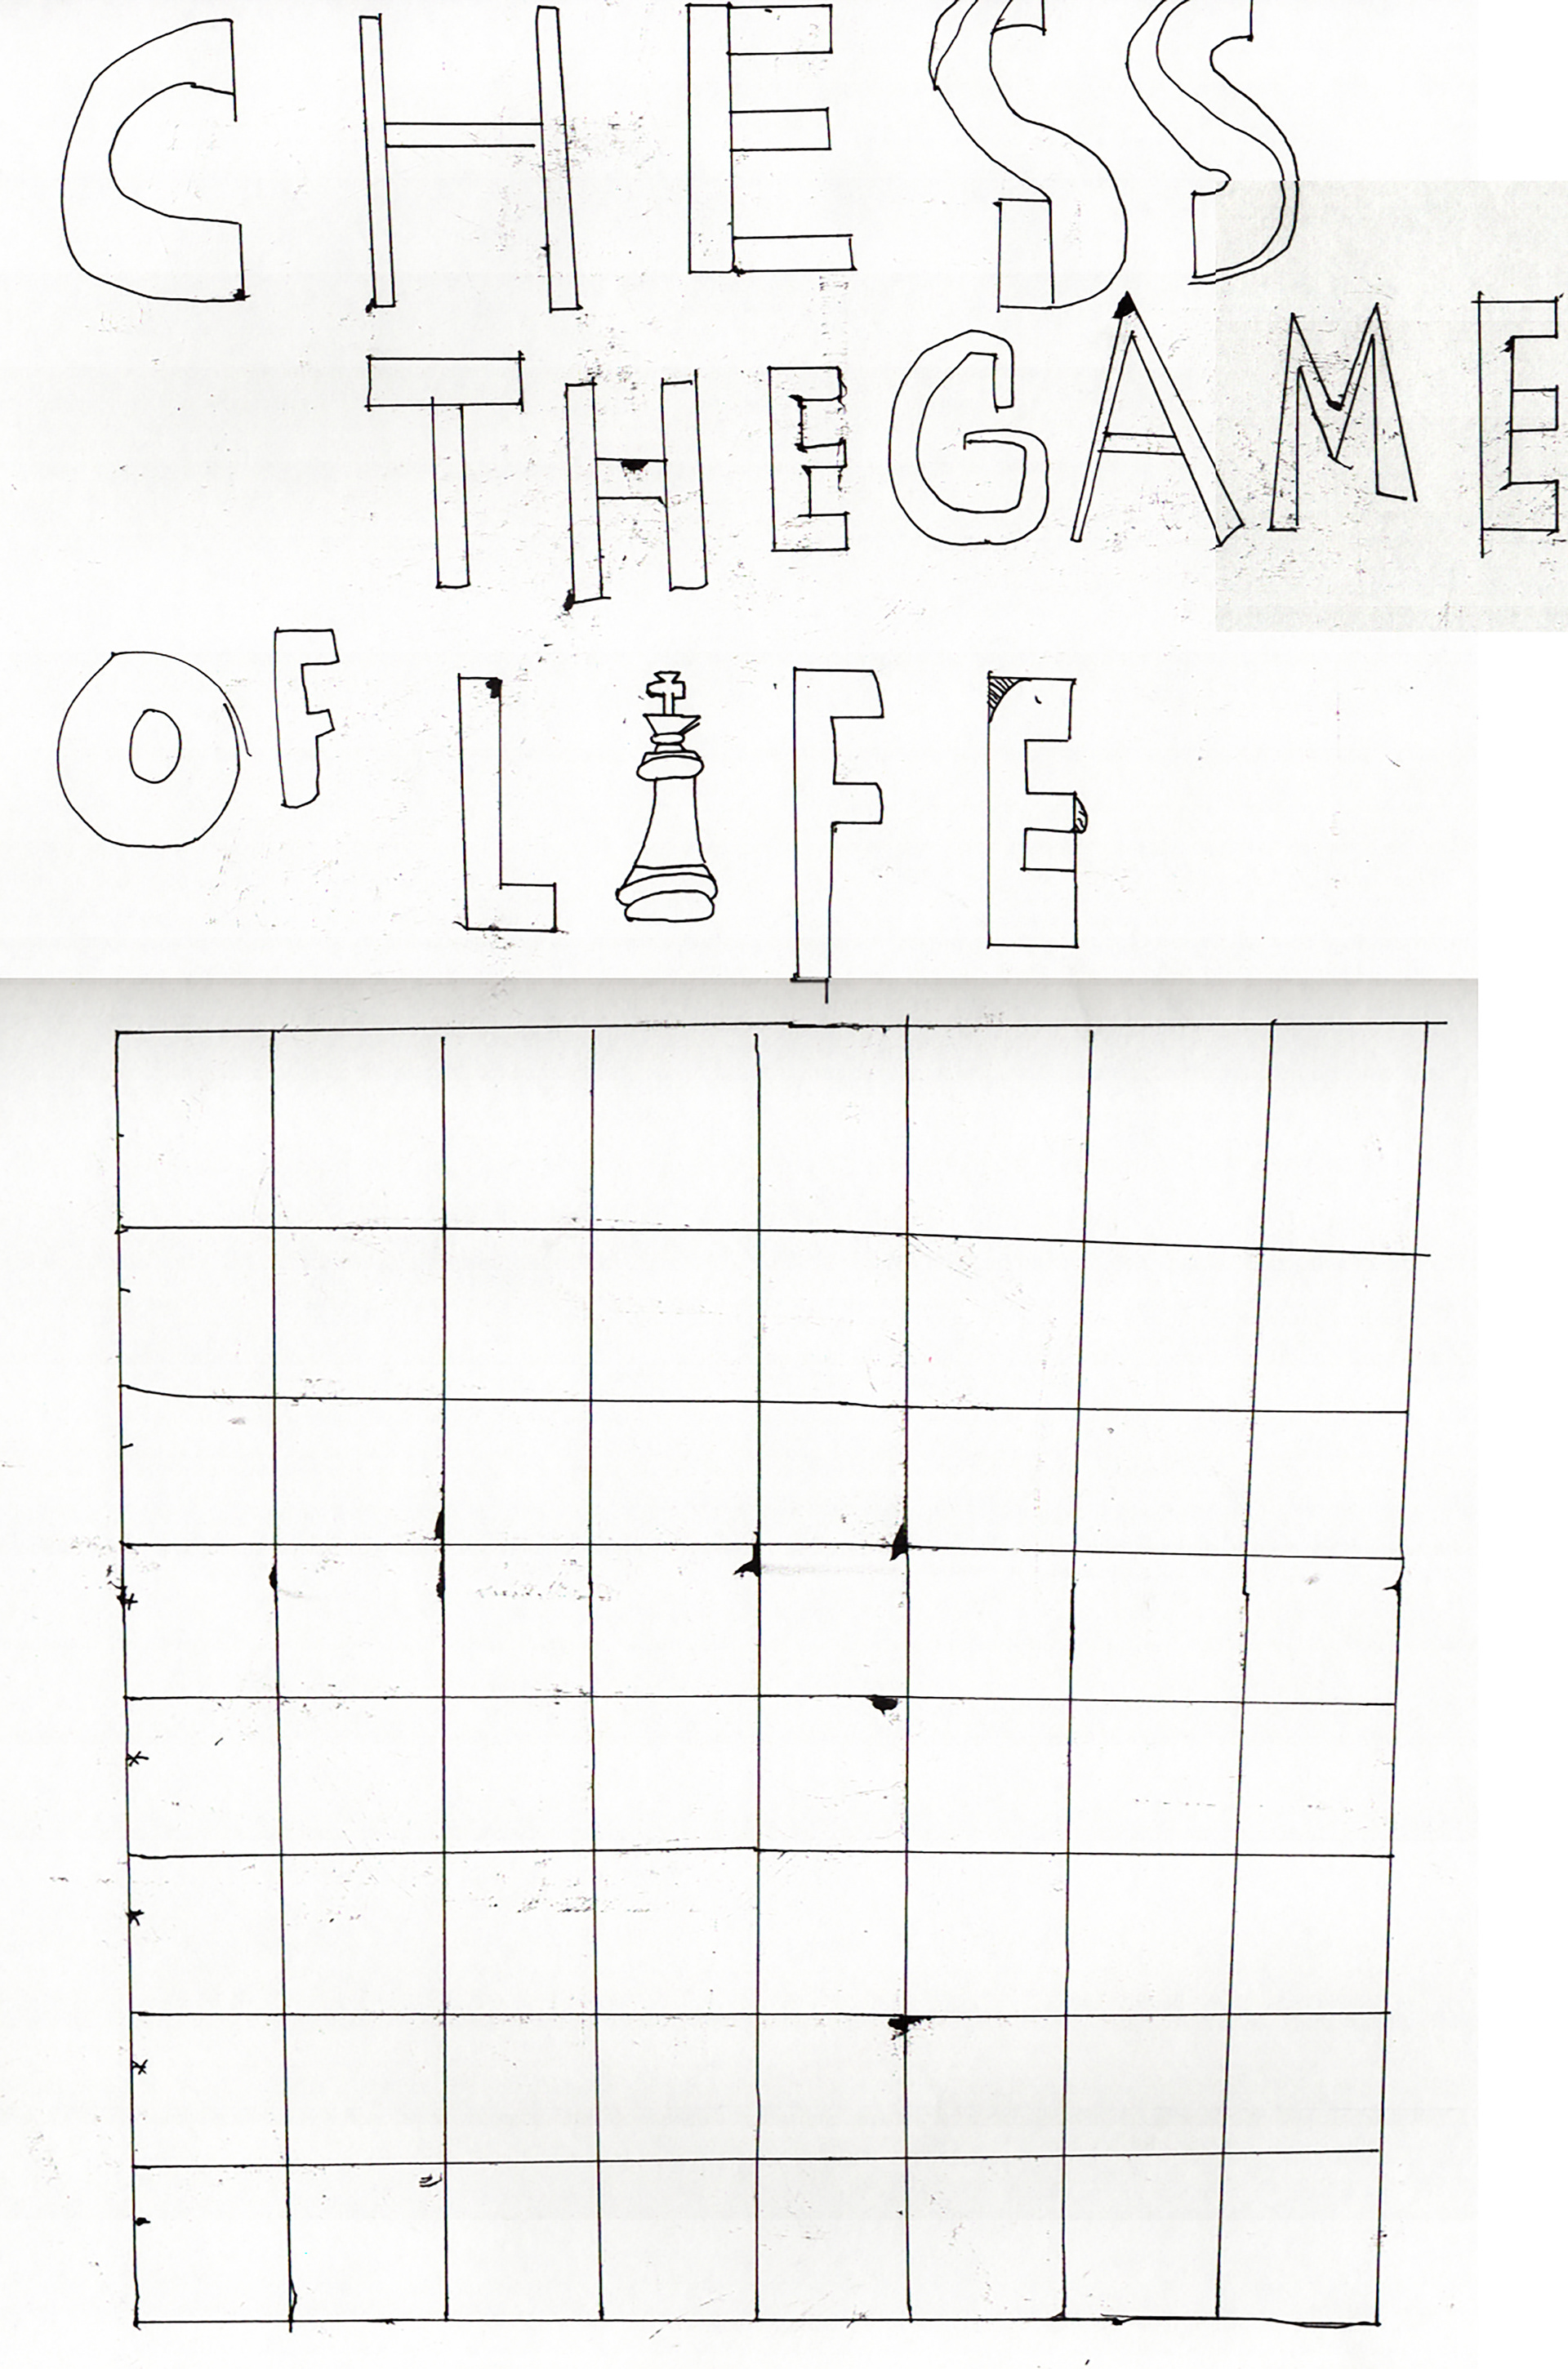 CHESS
THE GAME
OF LIFE